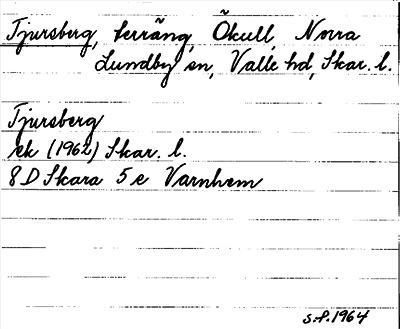 Tjursberg, terräng, Ökull, Norra
Lundby sn, Valle hd, Skar. l.
Tjursberg
ek (1962) Skar. l.
8 D Skara 5 e Varnhem
S.P. 1964